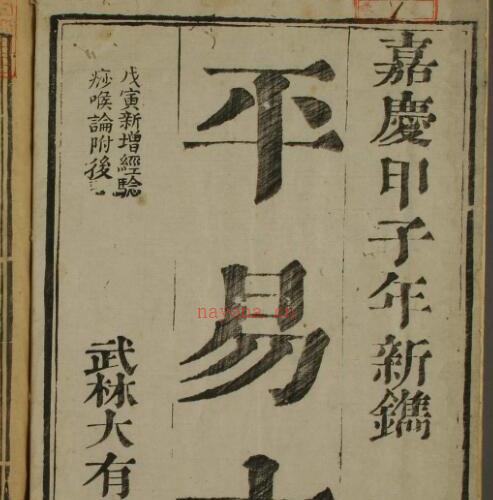 嘉慶甲子年新鐫
平易
戊寅新增經驗
痧喉論附後
武林大有
nayona.cn